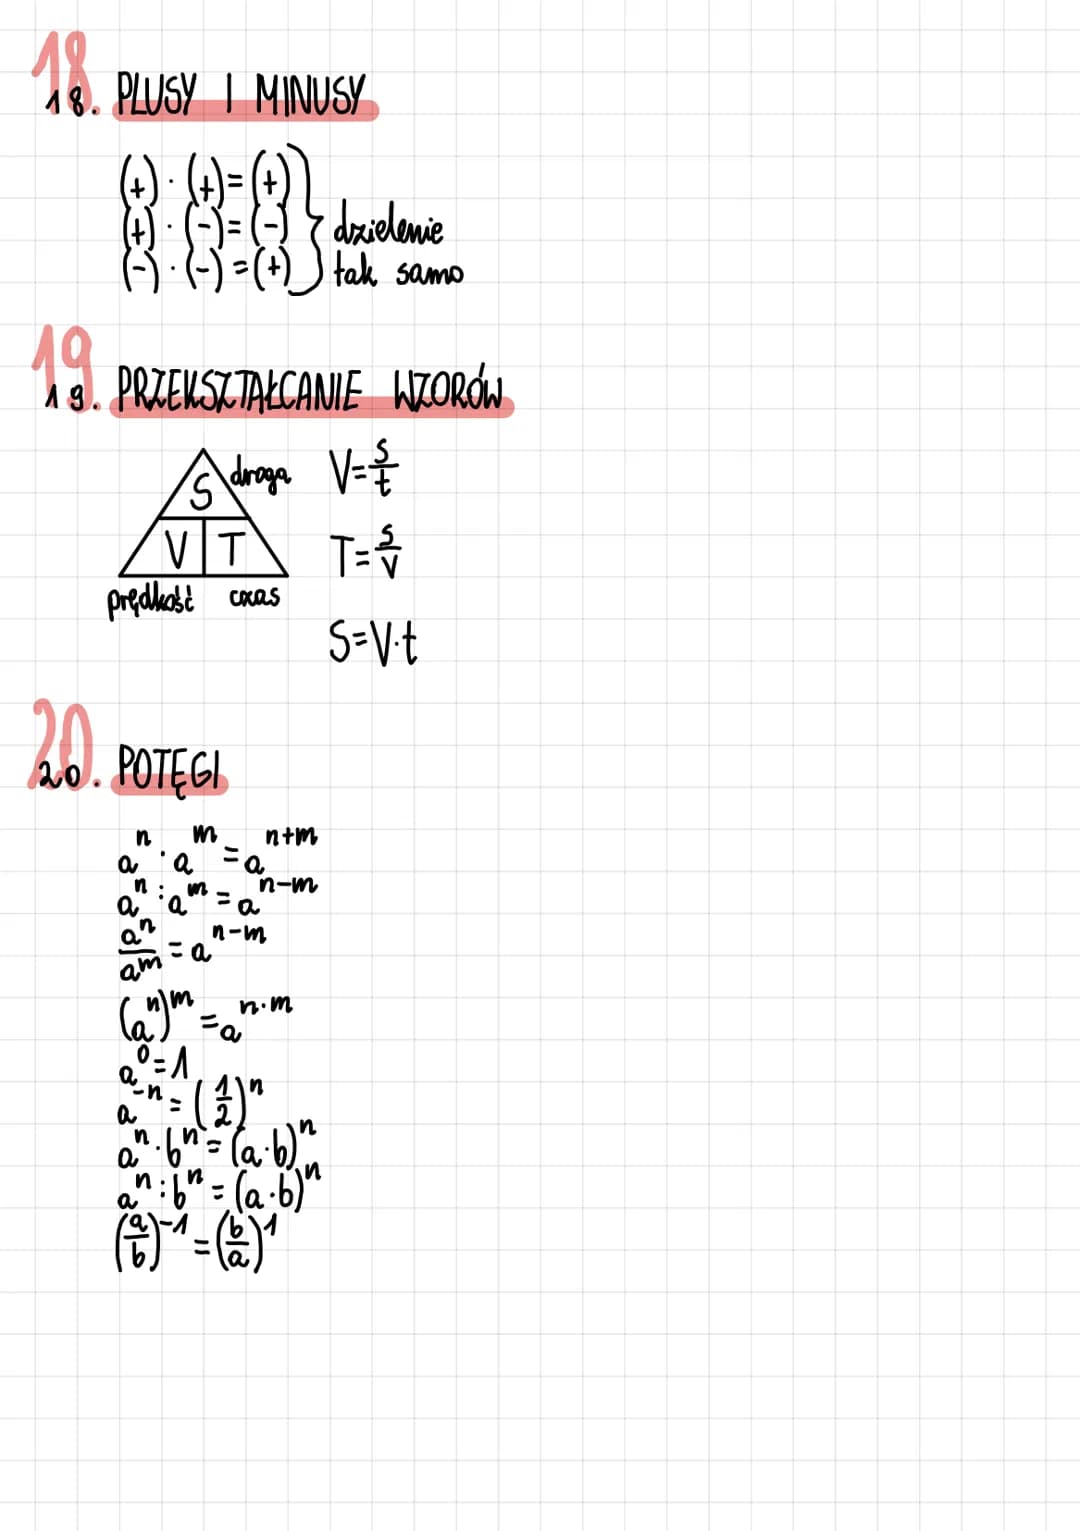 18.
18. PLUSY I MINUSY
(+) · (+) = (+)
(+) · (-) = (-)
(-) · (-) = (+)
dzielenie
tak samo
19.
19. PRZEKSZTAŁCANIE WZORÓW
S droga
V T
prędkość czas
V = s/t
T = s/v
S = V·t
20.
20. POTĘGI
a^n · a^m = a^(n+m)
a^n : a^m = a^(n-m)
a^n/a^m = a^(n-m)
(a^n)^m = a^(n·m)
a^0 = 1
a^(-n) = (1/2)^n
a^n · b^n = (a·b)^n
a^n : b^n = (a·b)^n
(a/b)^(-1) = (b/a)^1